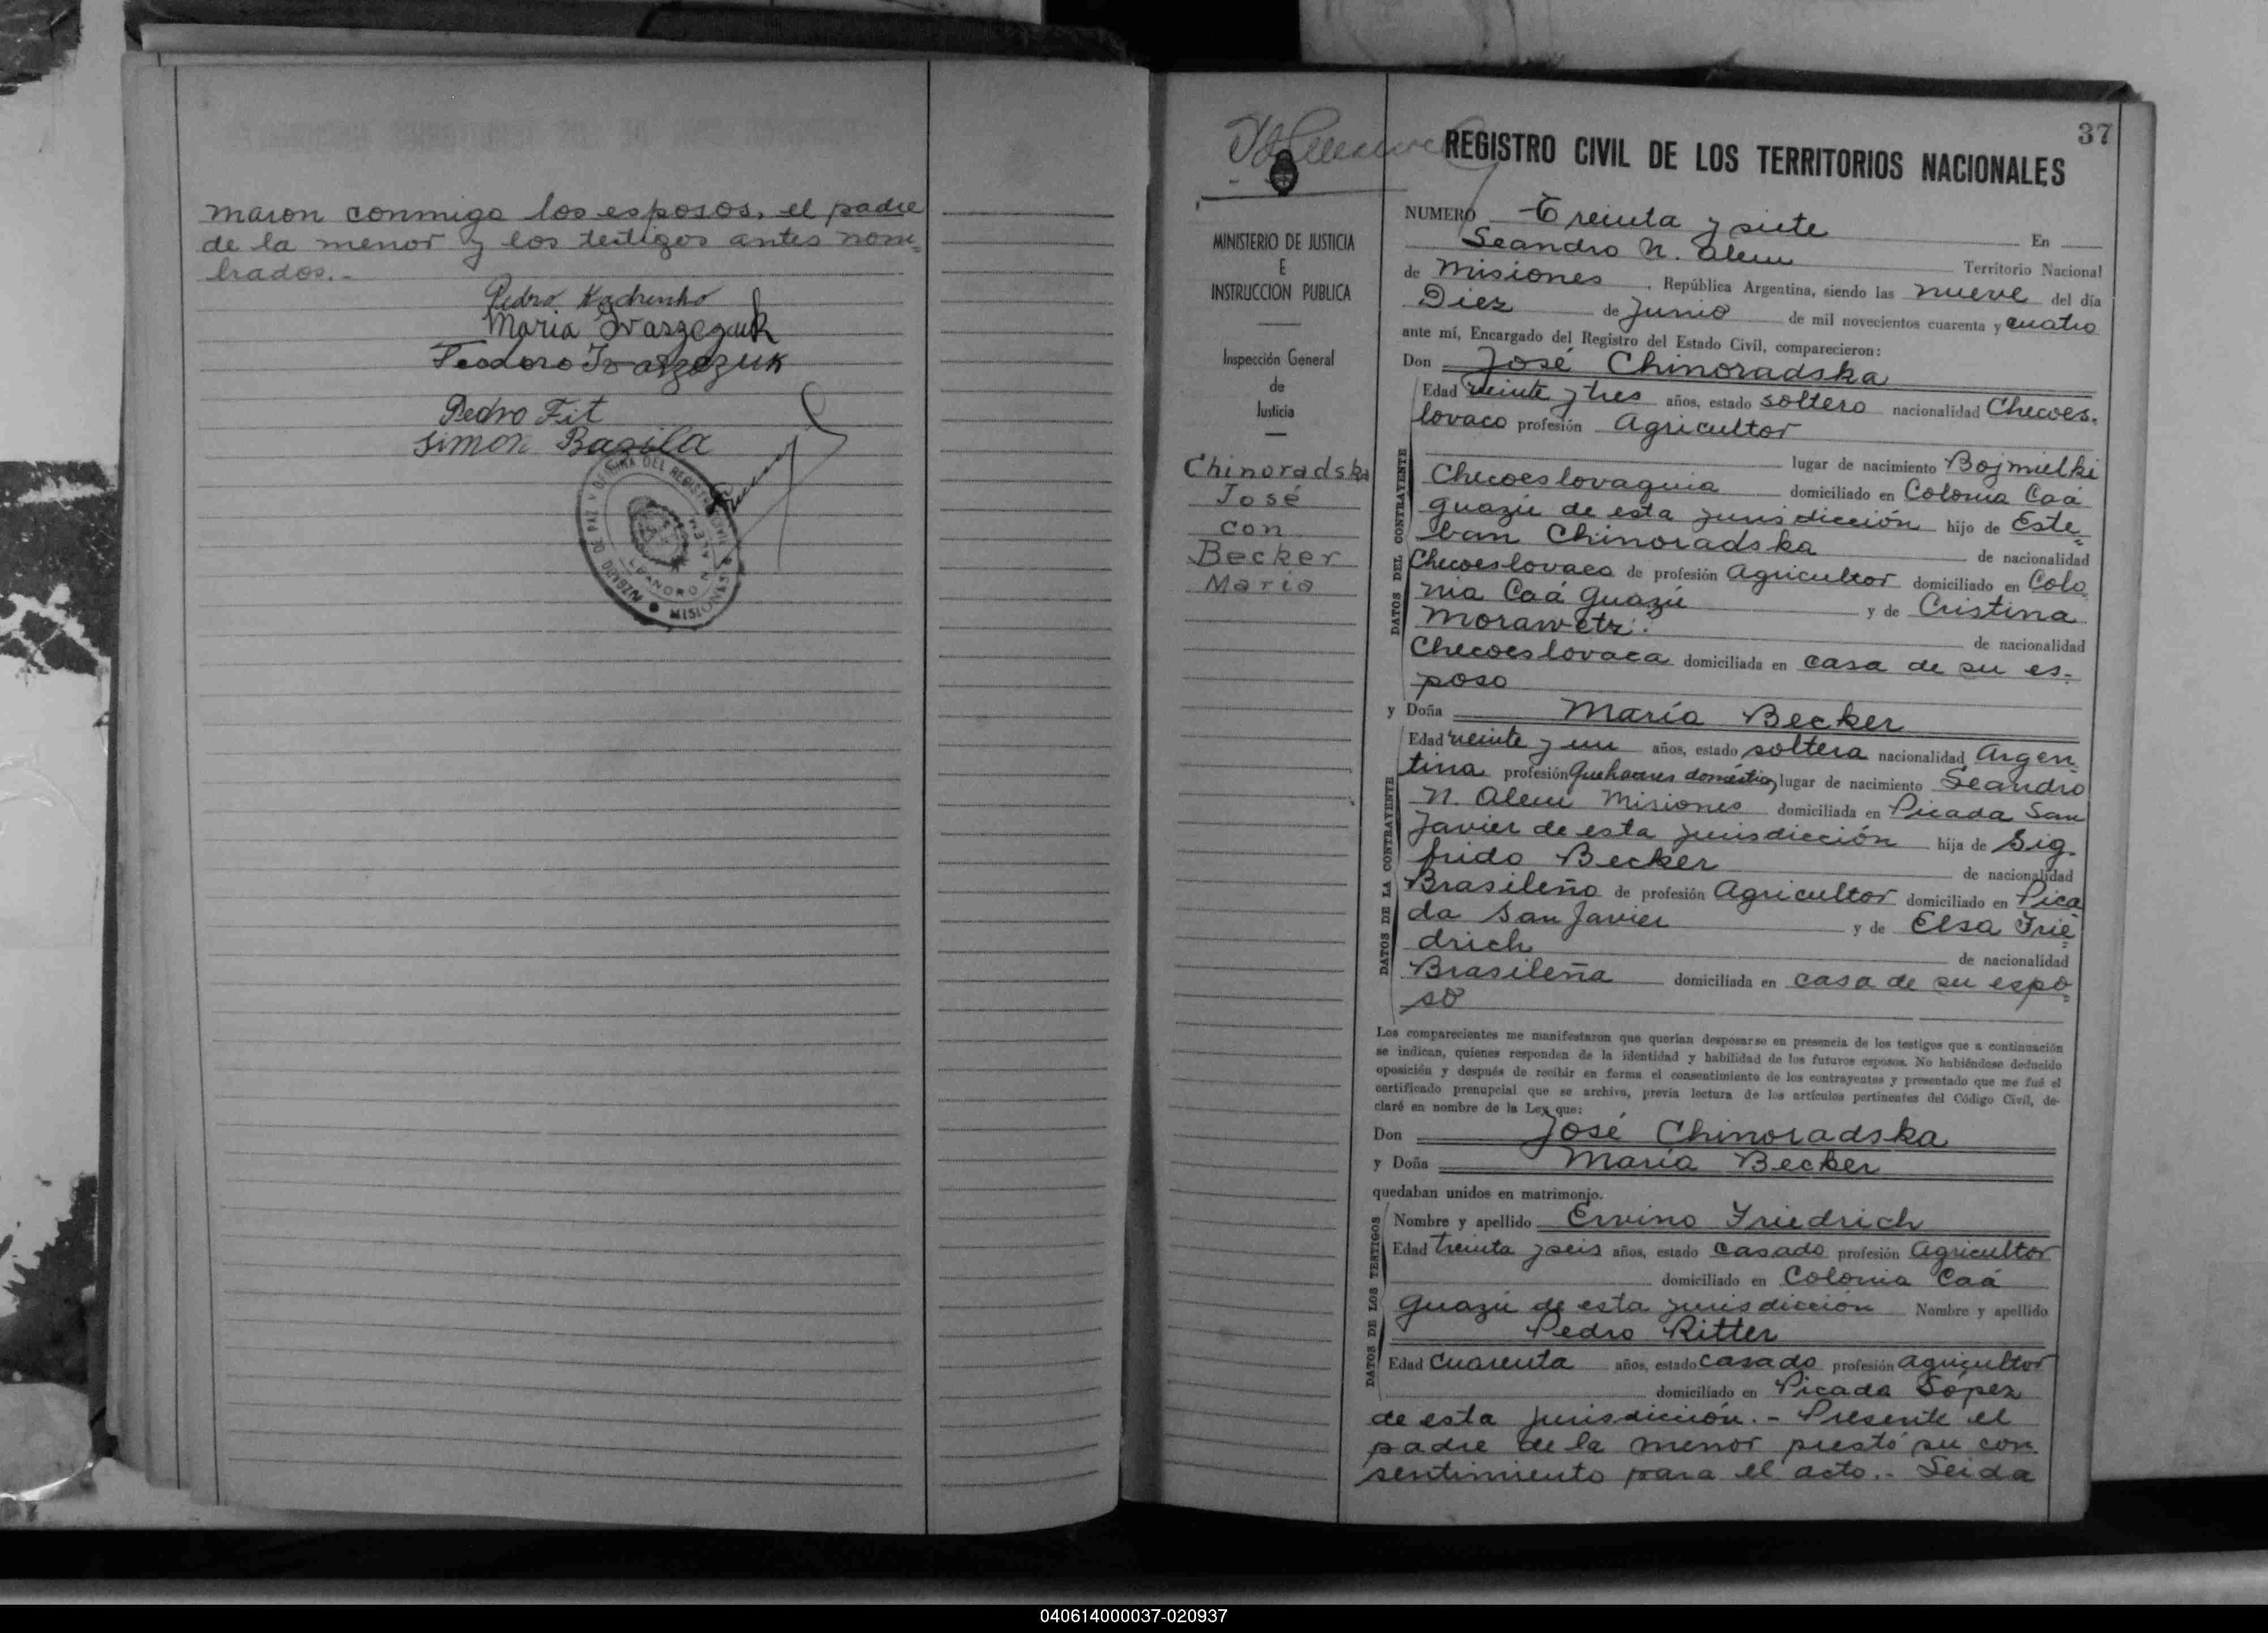 maron conmigo los esposos, el padre
de la menor y los testigos antes nom=
brados.-
Pedro Kachenko
Maria Iwaszczuk
Teodoro Iwaszczuk
Pedro Fit
Simon Bazila
DE PAZ Y OFICINA DEL REGISTRO CIVIL
LEANDRO N. ALEM
MISIONES
37
REGISTRO CIVIL DE LOS TERRITORIOS NACIONALES
MINISTERIO DE JUSTICIA
E
INSTRUCCION PUBLICA
Inspección General
de
Justicia
Chinoradska
José
con
Becker
Maria
NUMERO Treinta y siete En
Leandro N. Alem Territorio Nacional
de Misiones, República Argentina, siendo las nueve del día
Diez de Junio de mil novecientos cuarenta y cuatro
ante mí, Encargado del Registro del Estado Civil, comparecieron:
Don José Chinoradska
DATOS DEL CONTRAYENTE
Edad veinte y tres años, estado soltero nacionalidad Checoes-
lovaco profesión Agricultor
lugar de nacimiento Bojmielki
Checoeslovaquia domiciliado en Colonia Caá
guazú de esta jurisdicción hijo de Este=
ban Chinoradska de nacionalidad
Checoeslovaco de profesión Agricultor domiciliado en Colo
nia Caá Guazú y de Cristina
Morawetz. de nacionalidad
Checoeslovaca domiciliada en casa de su es-
poso
y Doña María Becker
DATOS DE LA CONTRAYENTE
Edad veinte y un años, estado soltera nacionalidad Argen=
tina profesión Quehaceres domésticos lugar de nacimiento Leandro
N. Alem Misiones domiciliada en Picada San
Javier de esta jurisdicción hija de Sig-
frido Becker de nacionalidad
Brasileño de profesión Agricultor domiciliado en Pica
da San Javier y de Elsa Frie=
drich de nacionalidad
Brasileña domiciliada en casa de su espo=
so
Los comparecientes me manifestaron que querían desposarse en presencia de los testigos que a continuación
se indican, quienes responden de la identidad y habilidad de los futuros esposos. No habiéndose deducido
oposición y después de recibir en forma el consentimiento de los contrayentes y presentado que me fué el
certificado prenupcial que se archiva, previa lectura de los artículos pertinentes del Código Civil, de-
claré en nombre de la Ley que:
Don José Chinoradska
y Doña María Becker
quedaban unidos en matrimonio.
DATOS DE LOS TESTIGOS
Nombre y apellido Ervino Friedrich
Edad treinta y seis años, estado casado profesión Agricultor
domiciliado en Colonia Caá
Guazú de esta jurisdicción Nombre y apellido
Pedro Ritter
Edad cuarenta años, estado casado profesión Agricultor
domiciliado en Picada López
de esta jurisdicción.- Presente el
padre de la menor prestó su con
sentimiento para el acto.- Leida
040614000037-020937